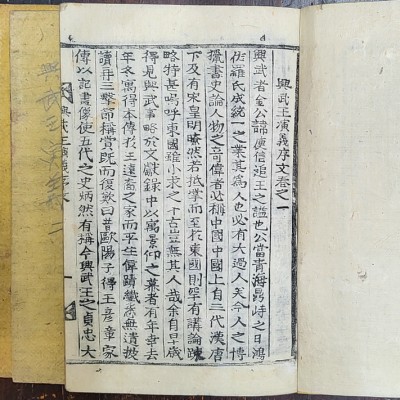 興武王演義序文卷之一
興武者金公諱庾信追王之謚也公當青海鼎峙之日鴻
佑羅氏成統一之業其爲人也必有大過人矣今人之博
攬書史論人物之奇偉者必稱中國中國上自三代漢唐
下及有宋皇明瞭然若抵掌而至於東國則罕有講論疎
略特甚嗚呼東國雖小求之千古豈無其人哉余自早歲
得見興武事略於文獻錄中以寓景仰之慕者有年幸去
年冬寓得本傳於王遠裔之家而平生偉蹟纖悉無遺披
讀再三擊節稱賞旣而復歎曰昔歐陽子得王彦章家
傳以記畫像使五代之史炳然有稱今興武王之貞忠大
興武王演義序
興武王演義